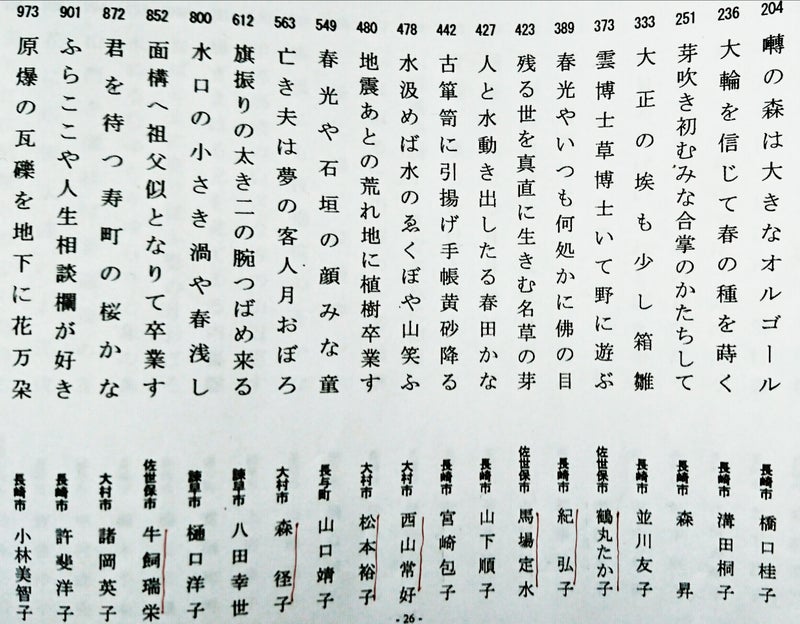 204 囀の森は大きなオルゴール 長崎市 橋口桂子
236 大輪を信じて春の種を蒔く 長崎市 溝田桐子
251 芽吹き初むみな合掌のかたちして 長崎市 森 昇
333 大正の埃も少し箱雛 長崎市 並川友子
373 雲博士草博士いて野に遊ぶ 佐世保市 鶴丸たか子
389 春光やいつも何処かに佛の目 長崎市 紀 弘子
423 残る世を真直に生きむ名草の芽 佐世保市 馬場定水
427 人と水動き出したる春田かな 長崎市 山下順子
442 古箪笥に引揚げ手帳黄砂降る 長崎市 宮崎包子
478 水汲めば水のゑくぼや山笑ふ 大村市 西山常好
480 地震あとの荒れ地に植樹卒業す 大村市 松本裕子
549 春光や石垣の顔みな童 長与町 山口靖子
563 亡き夫は夢の客人月おぼろ 大村市 森 径子
612 旗振りの太き二の腕つばめ来る 諫早市 八田幸世
800 水口の小さき渦や春浅し 諫早市 樋口洋子
852 面構へ祖父似となりて卒業す 佐世保市 牛飼瑞栄
872 君を待つ寿町の桜かな 大村市 諸岡英子
901 ふらここや人生相談欄が好き 長崎市 許斐洋子
973 原爆の瓦礫を地下に花万朶 長崎市 小林美智子
- 26 -